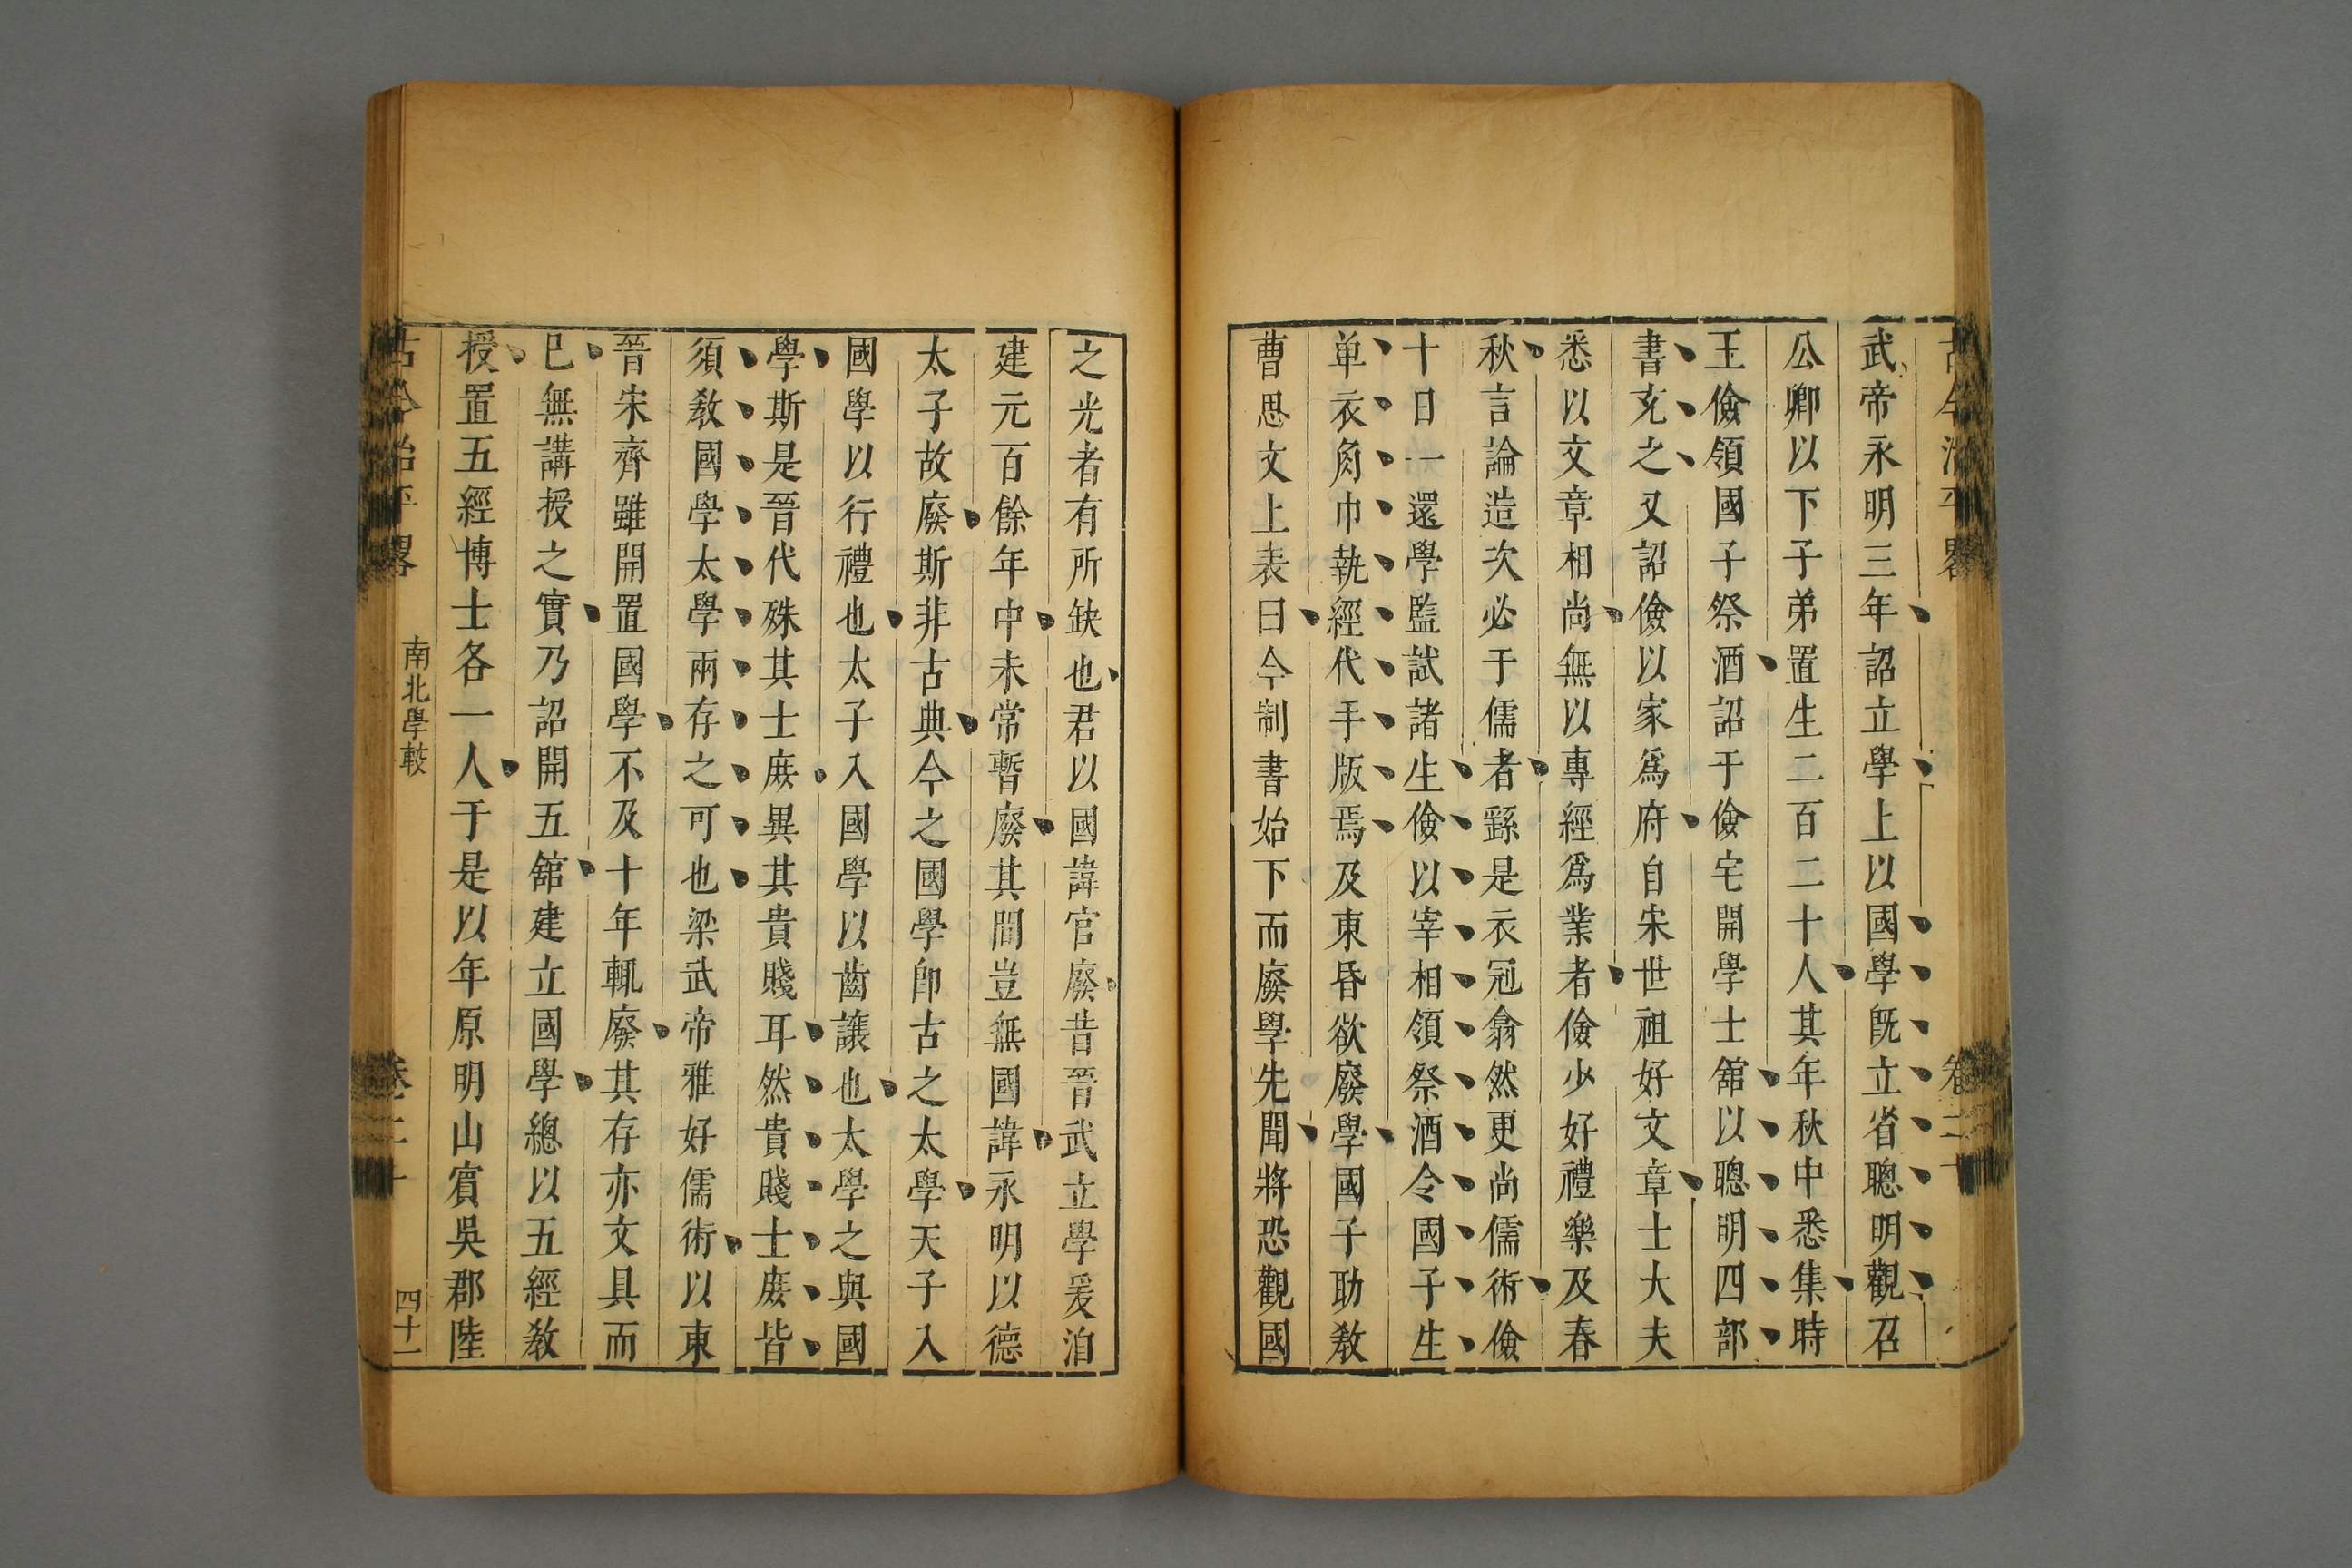 武帝永明三年詔立學上以國學旣立省聰明觀召
公卿以下子弟置生二百二十人其年秋中悉集時
王儉領國子祭酒詔于儉宅開學士舘以聰明四部
書充之又詔儉以家爲府自宋世祖好文章士大夫
悉以文章相尚無以專經爲業者儉少好禮樂及春
秋言論造次必于儒者繇是衣冠翕然更尚儒術儉
十日一還學監試諸生儉以宰相領祭酒令國子生
单衣角巾執經代手版焉及東昏欲廢學國子助敎
曹思文上表曰今制書始下而廢學先聞將恐觀國
之光者有所缺也君以國諱官廢昔晉武立學爰洎
建元百餘年中未常暫廢其間豈無國諱永明以德
太子故廢斯非古典今之國學卽古之太學天子入
國學以行禮也太子入國學以齒讓也太學之與國
學斯是晉代殊其士庶異其貴賤耳然貴賤士庶皆
須敎國學太學兩存之可也梁武帝雅好儒術以東
晉宋齊雖開置國學不及十年輒廢其存亦文具而
已無講授之實乃詔開五舘建立國學總以五經敎
授置五經博士各一人于是以年原明山賓吳郡陸
南北學較
四十一